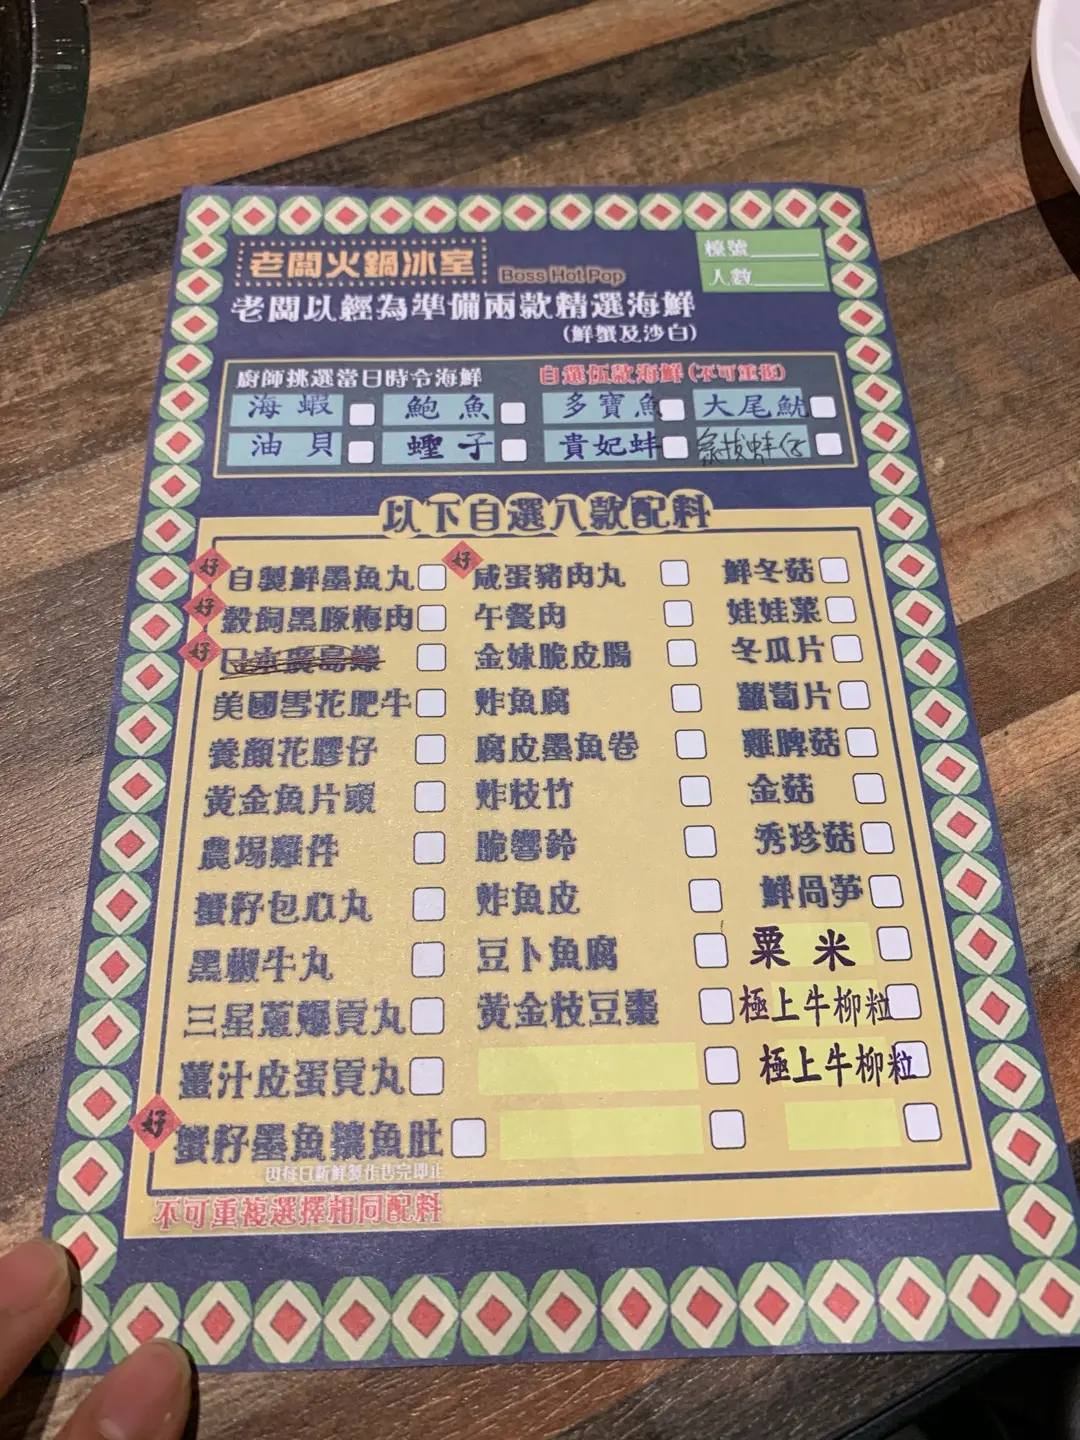 老闆火鍋冰室
Boss Hot Pop
檯號
人數
老闆以經為準備兩款精選海鮮
(鮮蟹及沙白)
廚師挑選當日時令海鮮 自選伍款海鮮(不可重複)
海蝦 鮑魚 多寶魚 大尾魷
油貝 蟶子 貴妃蚌 蚌仔
以下自選八款配料
好 自製鮮墨魚丸 好 咸蛋豬肉丸 鮮冬菇
好 穀飼黑豚梅肉 午餐肉 娃娃菜
好 日本廣島蠔 金妹脆皮腸 冬瓜片
美國雪花肥牛 炸魚腐 蘿蔔片
養顏花膠仔 腐皮墨魚卷 雞脾菇
黃金魚片頭 炸枝竹 金菇
農場雞件 脆響鈴 秀珍菇
蟹籽包心丸 炸魚皮 鮮萵笋
黑椒牛丸 豆卜魚腐 粟米
三星蔥爆貢丸 黃金枝豆棗 極上牛柳粒
薑汁皮蛋貢丸 極上牛柳粒
好 蟹籽墨魚釀魚肚
因每日新鮮製作售完即止
不可重複選擇相同配料